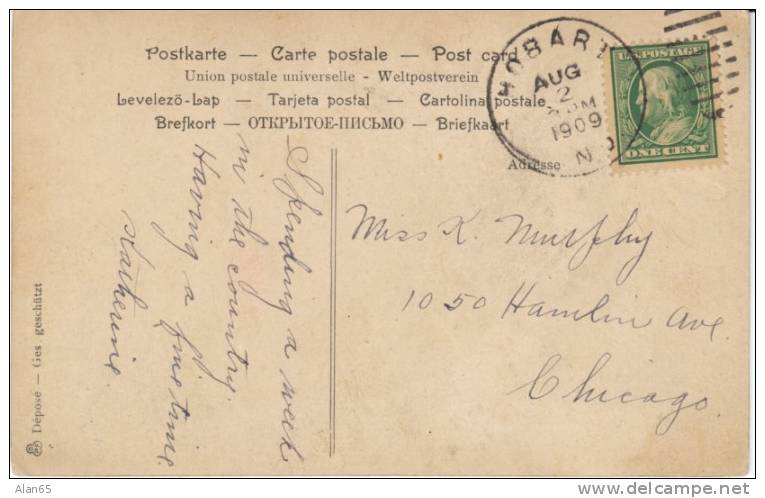 Postkarte — Carte postale — Post card
Union postale universelle - Weltpostverein
Levelező-Lap — Tarjeta postal — Cartolina postale
Brefkort — ОТКРЫТОЕ-ПИСЬМО — Briefkaart
Adresse
HOBART
AUG
2
M
1909
N
U.S. POSTAGE
ONE CENT
Spending a week
in the country.
Having a fine time.
Katherine.
Miss K. Murphy
1050 Hamlin Ave.
Chicago.
Déposé — Ges geschützt
Alan65
delcampe.net